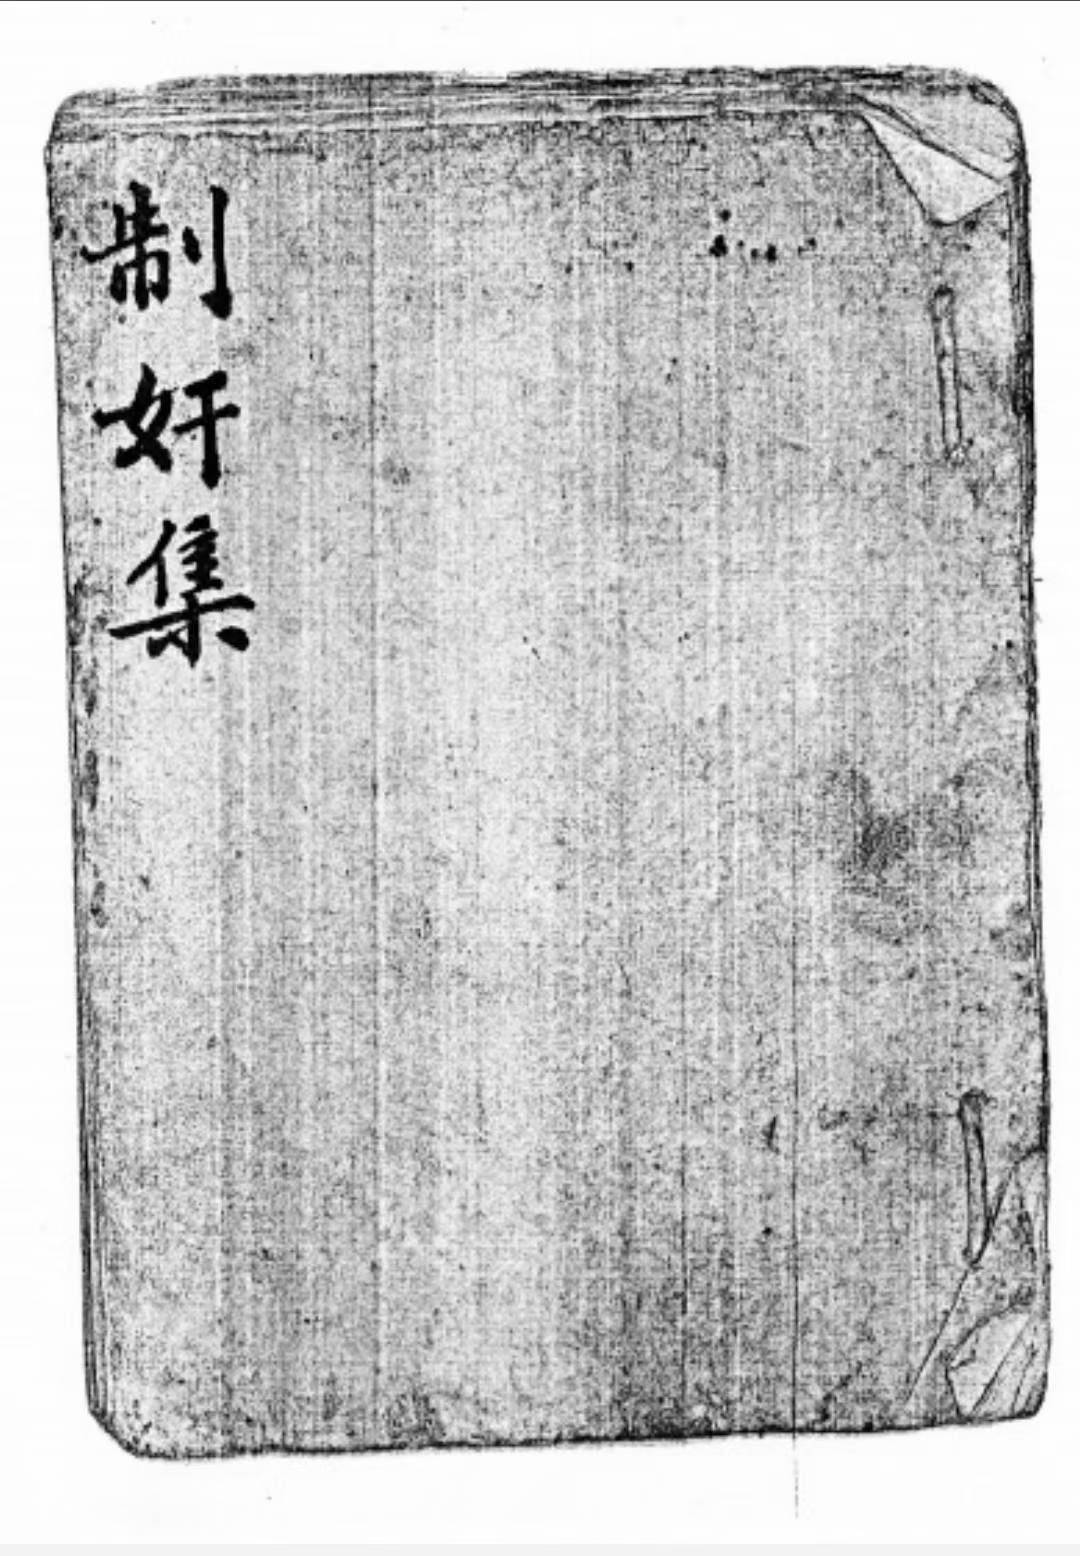 制奸集